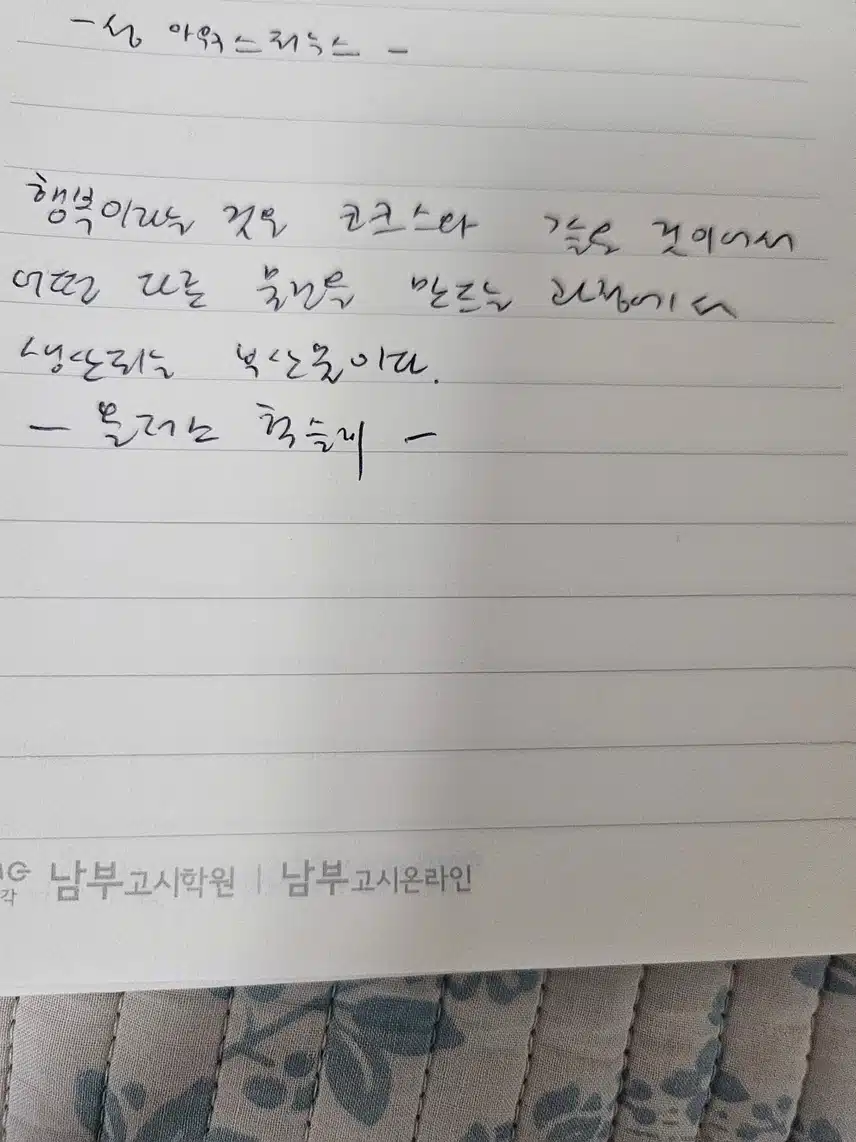 -성 아우구스티누스-
행복이라는 것은 코크스와 같은 것이어서
어떤 다른 물건을 만드는 과정에서
생산되는 부산물이다.
- 올더스 헉슬레 -
남부고시학원 | 남부고시온라인
각